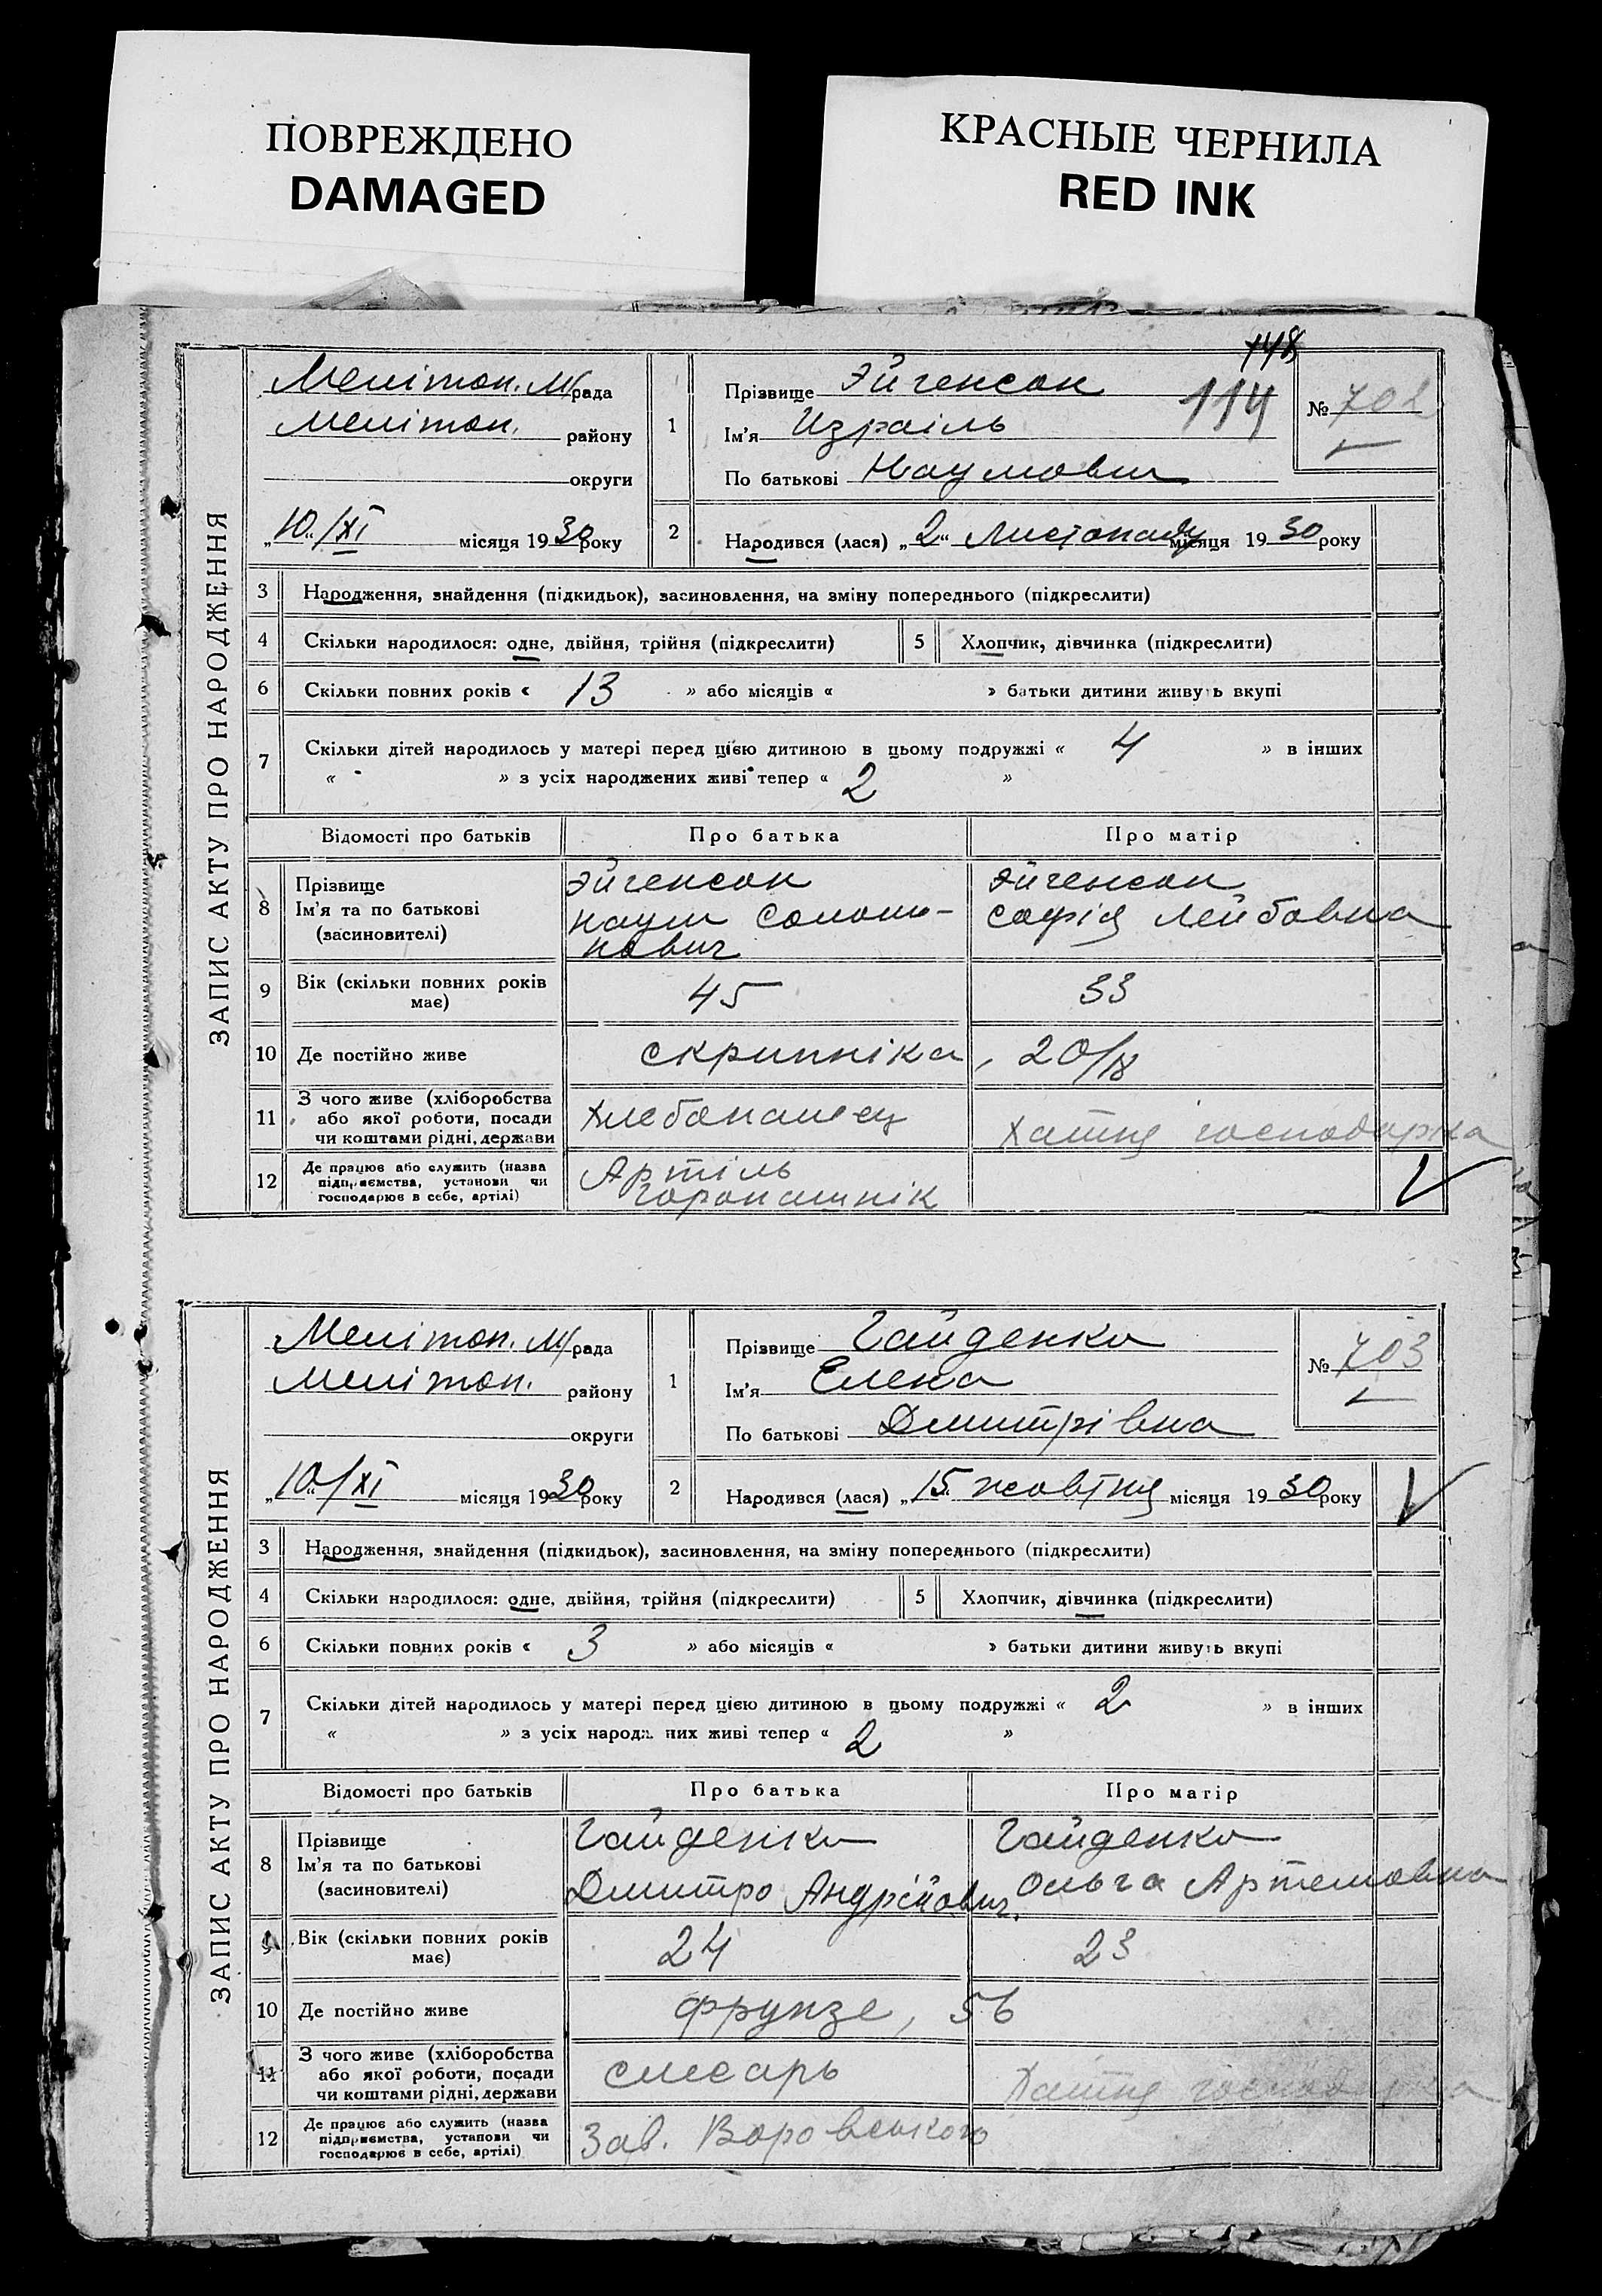 ПОВРЕЖДЕНО
DAMAGED
КРАСНЫЕ ЧЕРНИЛА
RED INK
ЗАПИС АКТУ ПРО НАРОДЖЕННЯ
Мелітоп. М/рада
Мелітоп. району
округи
„10“/XI місяця 1930 року
148
114
№ 702
1 Прізвище Эйгенсон
Ім'я Израіль
По батькові Наумович
2 Народився (лася) „2“ Листопаду місяця 1930 року
3 Народження, знайдення (підкидьок), засиновлення, на зміну попереднього (підкреслити)
4 Скільки народилося: одне, двійня, трійня (підкреслити) 5 Хлопчик, дівчинка (підкреслити)
6 Скільки повних років « 13 » або місяців « » батьки дитини живуть вкупі
7 Скільки дітей народилось у матері перед цією дитиною в цьому подружжі « 4 » в інших
« » з усіх народжених живі тепер « 2 »
Відомості про батьків Про батька Про матір
8 Прізвище
Ім'я та по батькові
(засиновителі)
Эйгенсон
Наум Соломо-
нович
Эйгенсон
Софія Лейбовна
9 Вік (скільки повних років
має)
45 33
10 Де постійно живе Скрипніка, 20/
11 З чого живе (хліборобства
або якої роботи, посади
чи коштами рідні, держави
Хлебопашец
Хатня господарка
12 Де працює або служить (назва
підприємства, установи чи
господарює в себе, артілі)
Артіль
горопашнік
ЗАПИС АКТУ ПРО НАРОДЖЕННЯ
Мелітоп. М/рада
Мелітоп. району
округи
„10“/XI місяця 1930 року
№ 703
1 Прізвище Гайденко
Ім'я Елена
По батькові Дмитрівна
2 Народився (лася) „15“ жовтня місяця 1930 року
3 Народження, знайдення (підкидьок), засиновлення, на зміну попереднього (підкреслити)
4 Скільки народилося: одне, двійня, трійня (підкреслити) 5 Хлопчик, дівчинка (підкреслити)
6 Скільки повних років « 3 » або місяців « » батьки дитини живуть вкупі
7 Скільки дітей народилось у матері перед цією дитиною в цьому подружжі « 2 » в інших
« » з усіх народжених живі тепер « 2 »
Відомості про батьків Про батька Про матір
8 Прізвище
Ім'я та по батькові
(засиновителі)
Гайденко
Дмитро Андрійович.
Гайденко
Ольга Артемовна
9 Вік (скільки повних років
має)
24 23
10 Де постійно живе Фрунзе, 56
11 З чого живе (хліборобства
або якої роботи, посади
чи коштами рідні, держави
слесарь
Хатня господарка
12 Де працює або служить (назва
підприємства, установи чи
господарює в себе, артілі)
Зав. Воровського